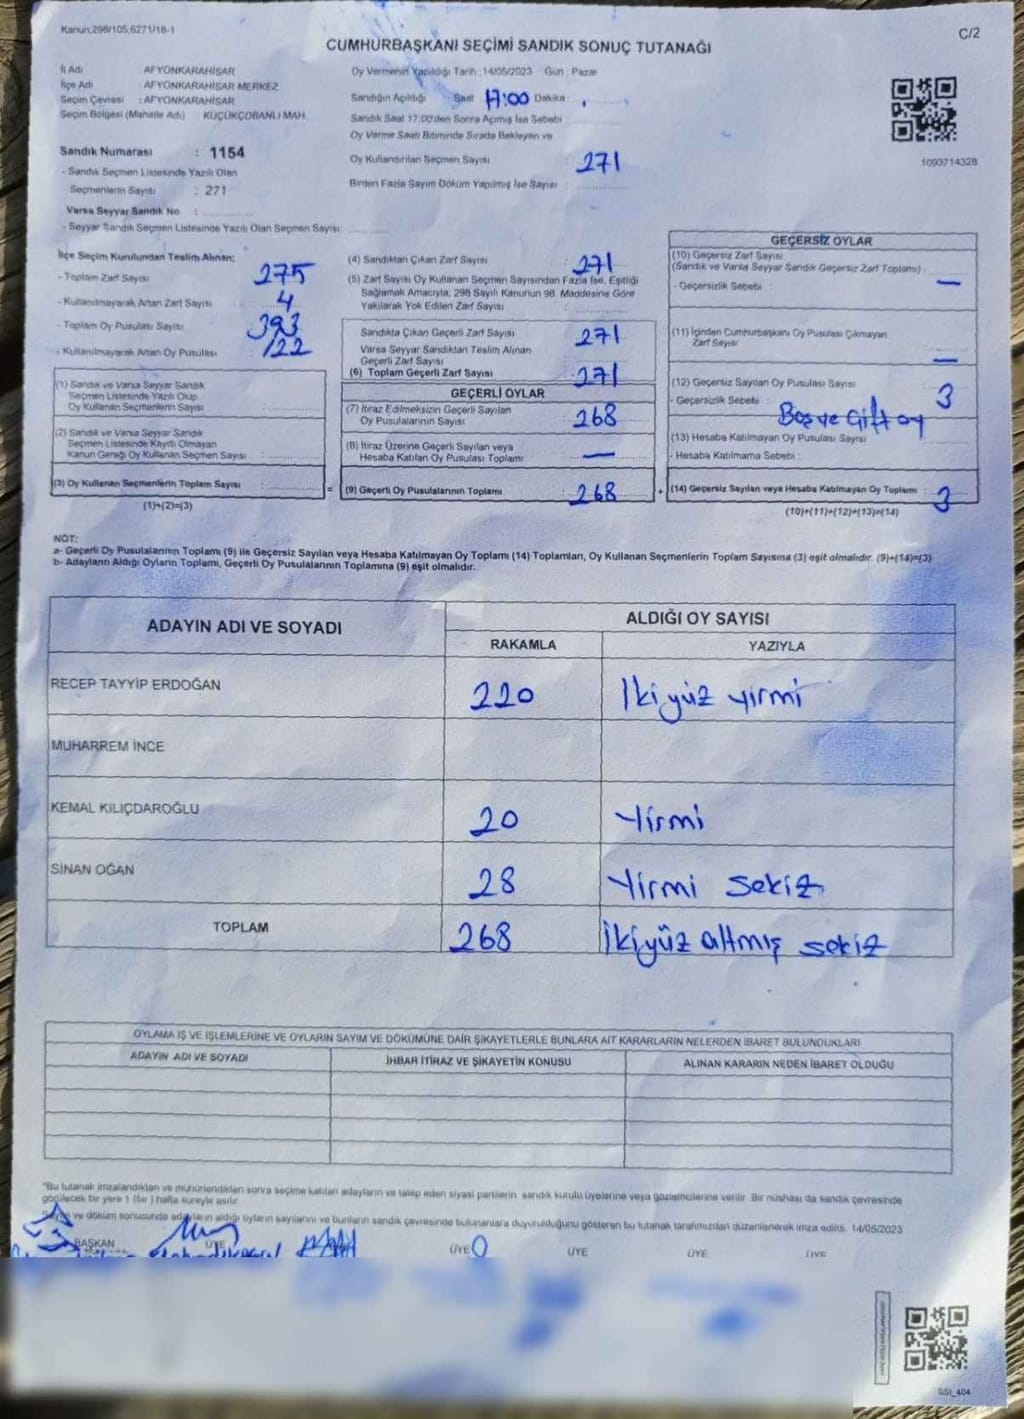 Kanun;298/105,6271/18-1
C/2
CUMHURBAŞKANI SEÇİMİ SANDIK SONUÇ TUTANAĞI
İl Adı : AFYONKARAHİSAR
İlçe Adı : AFYONKARAHİSAR MERKEZ
Seçim Çevresi : AFYONKARAHİSAR
Seçim Bölgesi (Mahalle Adı) : KÜÇÜKÇOBANLI MAH.
Sandık Numarası : 1154
- Sandık Seçmen Listesinde Yazılı Olan
Seçmenlerin Sayısı : 271
Varsa Seyyar Sandık No :
- Seyyar Sandık Seçmen Listesinde Yazılı Olan Seçmen Sayısı:
Oy Vermenin Yapıldığı Tarih :14/05/2023 Gün : Pazar
Sandığın Açıldığı Saat : 17:00 Dakika :
Sandık Saat 17:00'den Sonra Açmış İse Sebebi
Oy Verme Saati Bitiminde Sırada Bekleyen ve
Oy Kullandırılan Seçmen Sayısı : 271
Birden Fazla Sayım Döküm Yapılmış İse Sayısı :
1093714328
İlçe Seçim Kurulundan Teslim Alınan;
- Toplam Zarf Sayısı : 275
- Kullanılmayarak Artan Zarf Sayısı : 4
- Toplam Oy Pusulası Sayısı : 393
- Kullanılmayarak Artan Oy Pusulası : 122
(1) Sandık ve Varsa Seyyar Sandık
Seçmen Listesinde Yazılı Olup
Oy Kullanan Seçmenlerin Sayısı :
(2) Sandık ve Varsa Seyyar Sandık
Seçmen Listesinde Kayıtlı Olmayan
Kanun Gereği Oy Kullanan Seçmen Sayısı :
(3) Oy Kullanan Seçmenlerin Toplam Sayısı :
(1)+(2)=(3)
=
(4) Sandıktan Çıkan Zarf Sayısı : 271
(5) Zarf Sayısı Oy Kullanan Seçmen Sayısından Fazla İse, Eşitliği
Sağlamak Amacıyla; 298 Sayılı Kanunun 98. Maddesine Göre
Yakılarak Yok Edilen Zarf Sayısı :
Sandıkta Çıkan Geçerli Zarf Sayısı : 271
Varsa Seyyar Sandıktan Teslim Alınan
Geçerli Zarf Sayısı :
(6) Toplam Geçerli Zarf Sayısı : 271
GEÇERLİ OYLAR
(7) İtiraz Edilmeksizin Geçerli Sayılan
Oy Pusulalarının Sayısı : 268
(8) İtiraz Üzerine Geçerli Sayılan veya
Hesaba Katılan Oy Pusulası Toplamı : —
(9) Geçerli Oy Pusulalarının Toplamı : 268
+
GEÇERSİZ OYLAR
(10) Geçersiz Zarf Sayısı
(Sandık ve Varsa Seyyar Sandık Geçersiz Zarf Toplamı) :
- Geçersizlik Sebebi : —
(11) İçinden Cumhurbaşkanı Oy Pusulası Çıkmayan
Zarf Sayısı : —
(12) Geçersiz Sayılan Oy Pusulası Sayısı : 3
- Geçersizlik Sebebi : Boş ve Çift oy
(13) Hesaba Katılmayan Oy Pusulası Sayısı :
- Hesaba Katılmama Sebebi :
(14) Geçersiz Sayılan veya Hesaba Katılmayan Oy Toplamı : 3
(10)+(11)+(12)+(13)=(14)
NOT:
a- Geçerli Oy Pusulalarının Toplamı (9) ile Geçersiz Sayılan veya Hesaba Katılmayan Oy Toplamı (14) Toplamları, Oy Kullanan Seçmenlerin Toplam Sayısına (3) eşit olmalıdır. (9)+(14)=(3)
b- Adayların Aldığı Oyların Toplamı, Geçerli Oy Pusulalarının Toplamına (9) eşit olmalıdır.
ADAYIN ADI VE SOYADI
ALDIĞI OY SAYISI
RAKAMLA YAZIYLA
RECEP TAYYİP ERDOĞAN 220 İkiyüz yirmi
MUHARREM İNCE
KEMAL KILIÇDAROĞLU 20 Yirmi
SİNAN OĞAN 28 Yirmi sekiz
TOPLAM 268 İkiyüz altmış sekiz
OYLAMA İŞ VE İŞLEMLERİNE VE OYLARIN SAYIM VE DÖKÜMÜNE DAİR ŞİKAYETLERLE BUNLARA AİT KARARLARIN NELERDEN İBARET BULUNDUKLARI
ADAYIN ADI VE SOYADI İHBAR İTİRAZ VE ŞİKAYETİN KONUSU ALINAN KARARIN NEDEN İBARET OLDUĞU
"Bu tutanak imzalandıktan ve mühürlendikten sonra seçime katılan adayların ve talep eden siyasi partilerin sandık kurulu üyelerine veya gözlemcilerine verilir. Bir nüshası da sandık çevresinde
görülecek bir yere 1 (bir ) hafta süreyle asılır.
Sayım ve döküm sonucunda adayların aldığı oyların sayılarını ve bunların sandık çevresinde bulunanlara duyurulduğunu gösteren bu tutanak tarafımızdan düzenlenerek imza edildi. 14/05/2023
BAŞKAN ÜYE ÜYE ÜYE ÜYE ÜYE
SSI_404